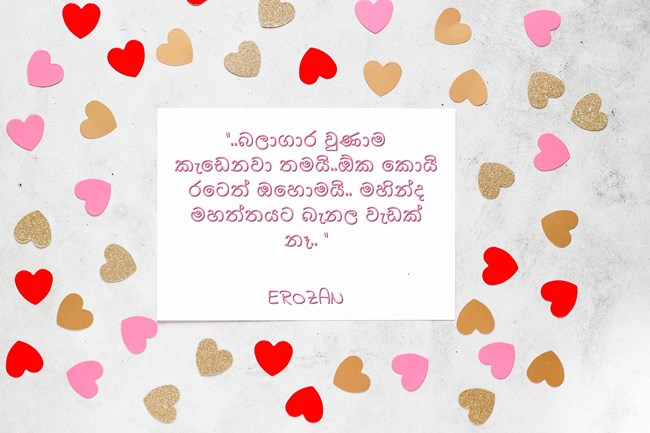 "..බලාගාර වුණාම
කැඩෙනවා තමයි..ඕක කොයි
රටෙත් ඔහොමයි.. මහින්ද
මහත්තයට බැනල වැඩක්
නෑ.. "
EROZAN